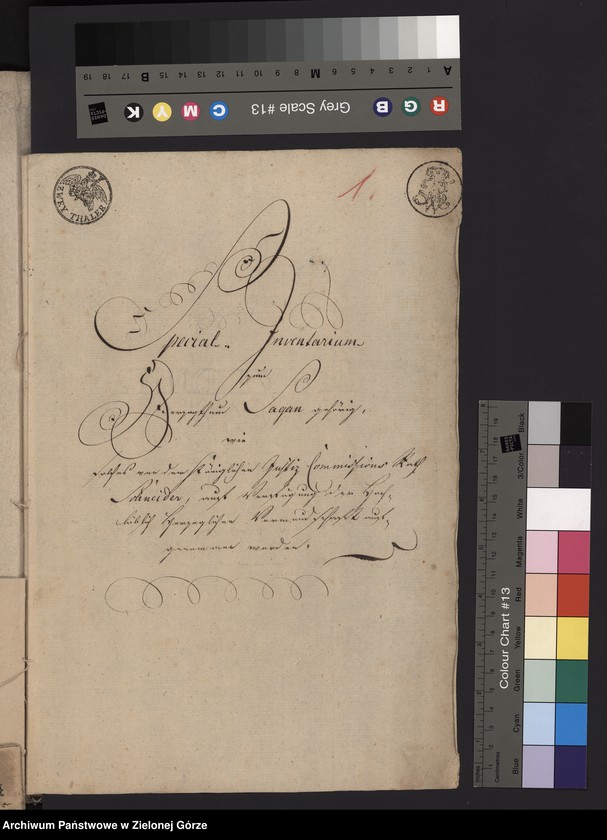 19 18 17 16 15 14 13 12 11 10 9 8 7 6 5 4 3 2 1
B M A
K Y M C Grey Scale #13 B G R
ZWEY THALER
1.
Special- Inventarium
zum
Herzogthum Sagan gehörig,
wie
solches von dem Königlichen Justiz Commissions Rath
Schneider, auf Verfügung der Hoch-
löblich Herzoglichen Vormundschaft auf-
genommen worden.
Colour Chart #13
Blue Cyan Green Yellow Red Magenta White 3/Color Black
Centimetres
Archiwum Państwowe w Zielonej Górze